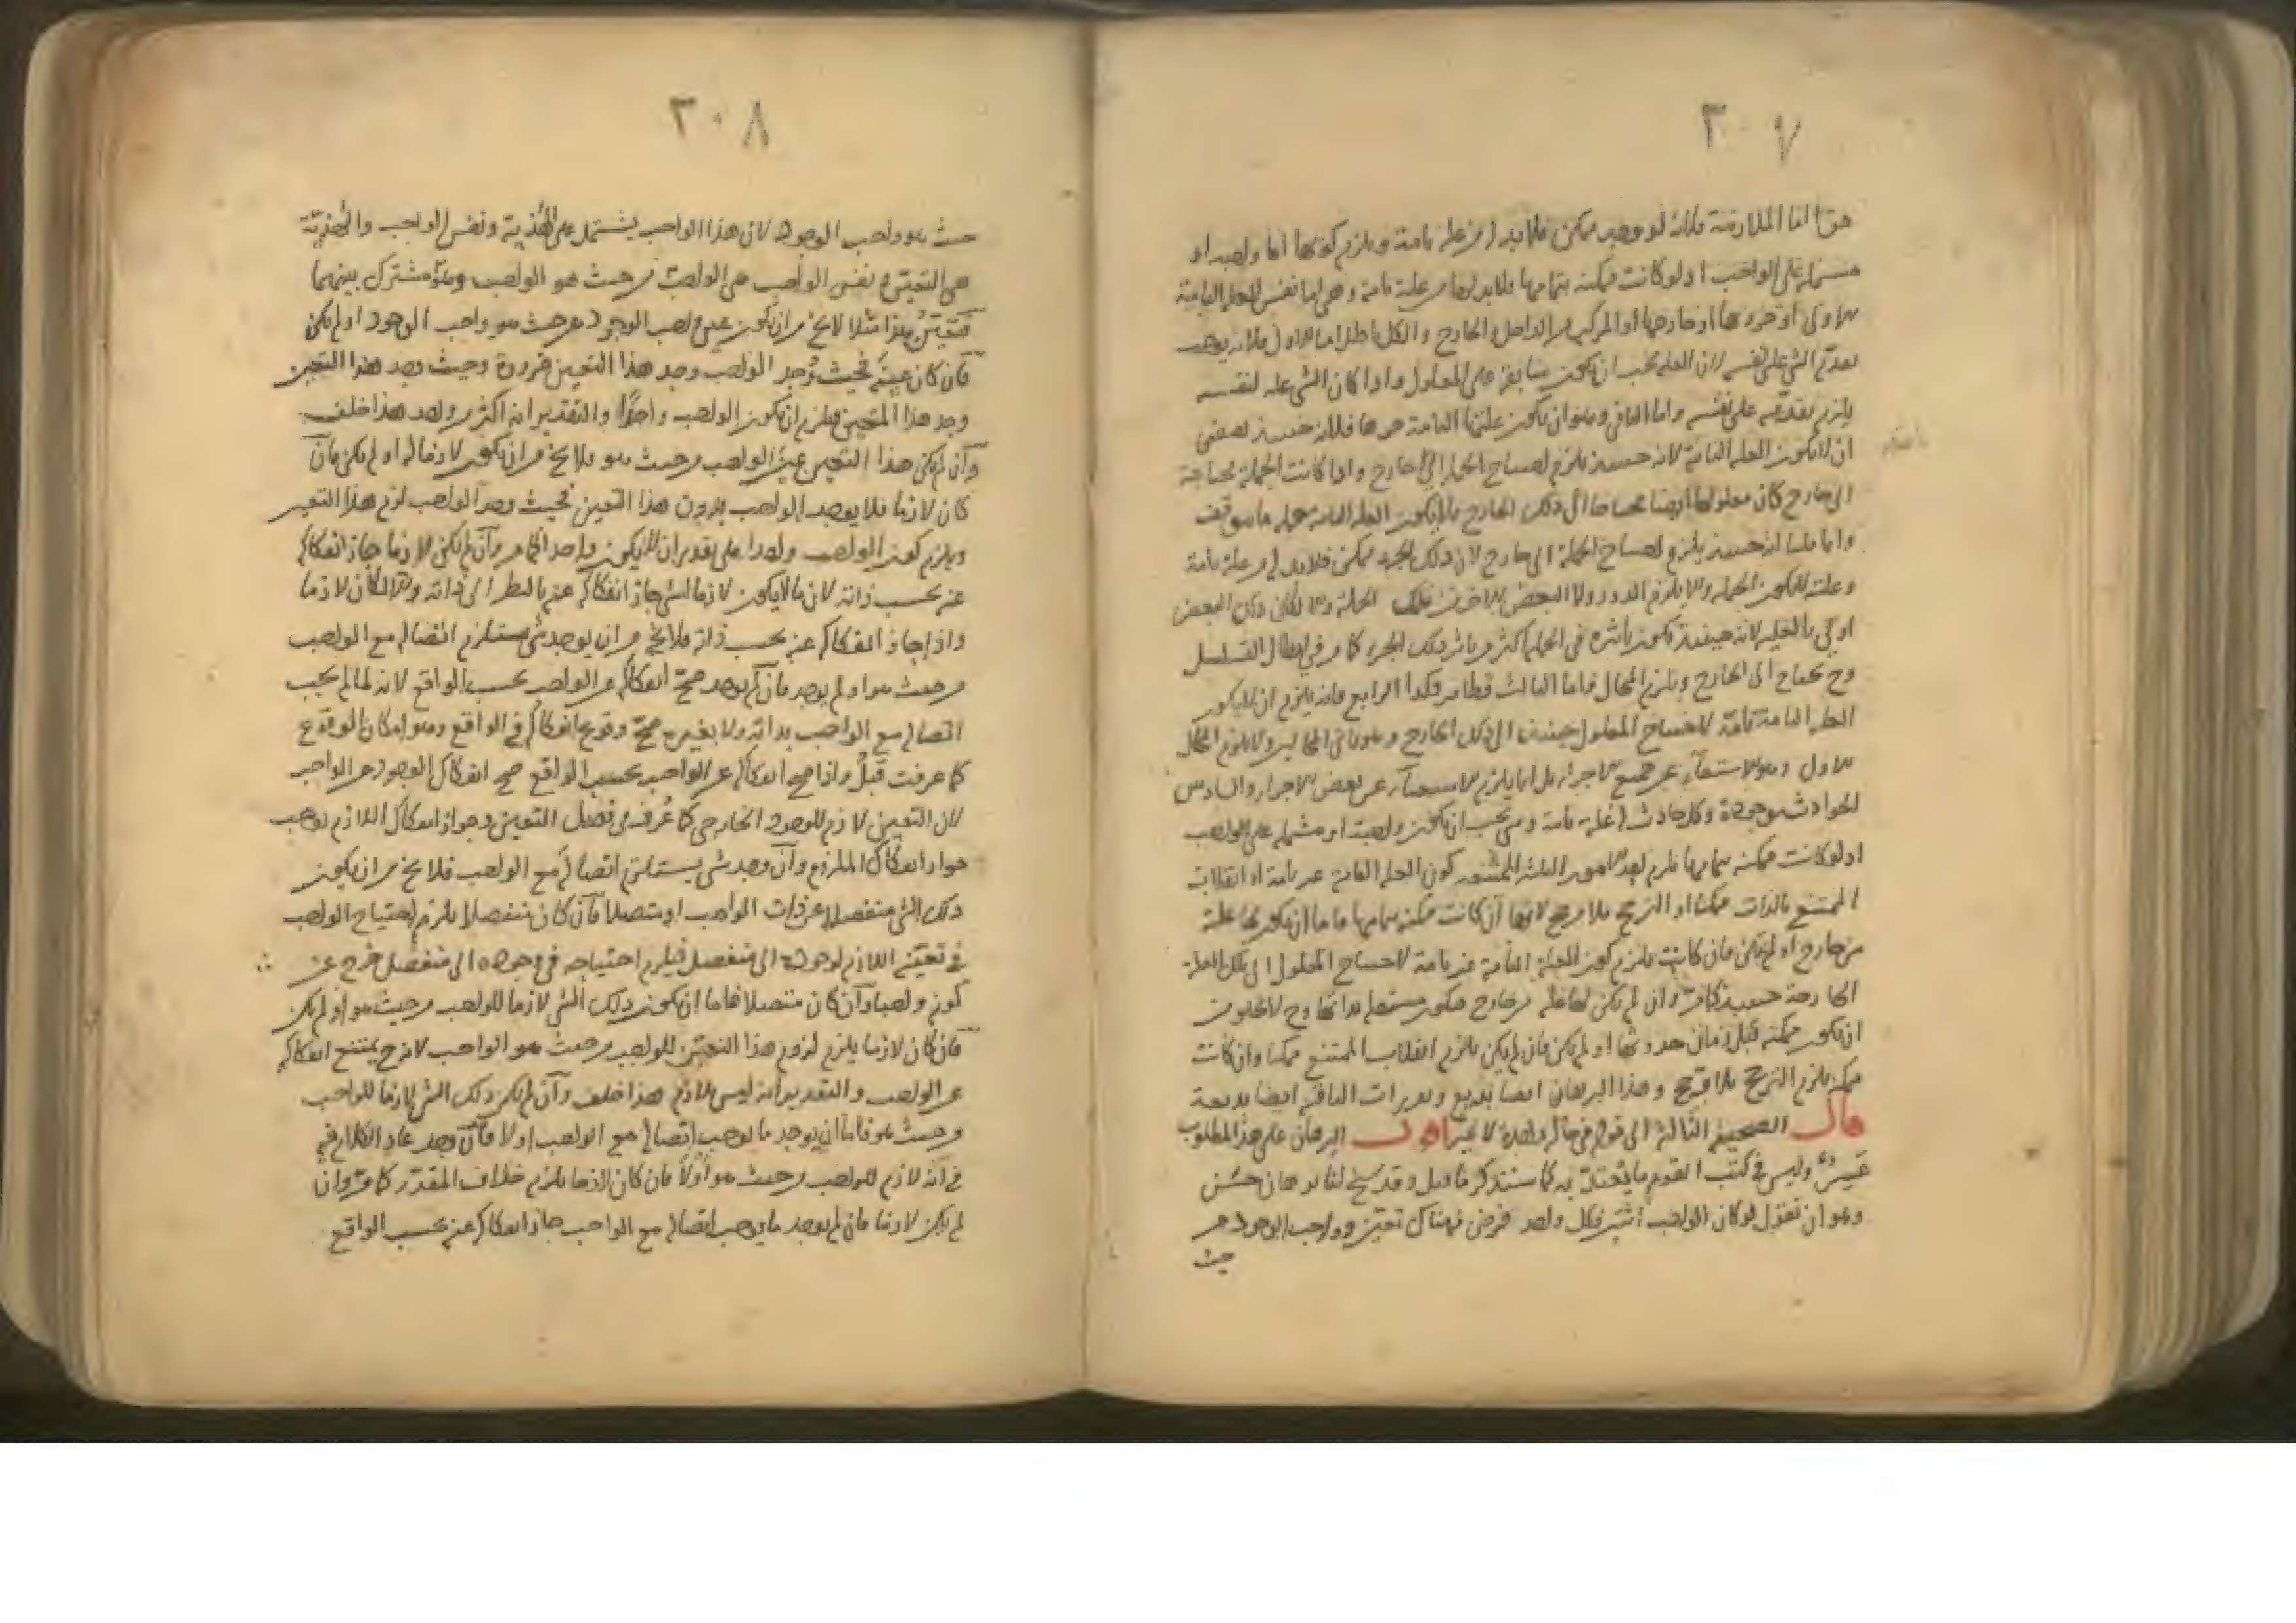 ٣٠٧
حق اما الملازمة فلانه لو وجد ممكن فلا بد له من علة تامة ويلزم كونها اما واجبة او
مشتملة على الواجب اذ لو كانت ممكنة بتمامها فلا بد لها من علة تامة وهي اما نفس العلة التامة
الاولى او جزءها او خارجها او المركب من الداخل والخارج والكل باطل اما الاول فلانه يوجب
تقدم الشئ على نفسه لان العلة يجب ان يكون سابقة على المعلول واذا كان الشئ علة لنفسه
يلزم تقدمه على نفسه واما الثاني وهو ان يكون علتها التامة جزءها فلانه حينئذ
ان لا يكون العلة التامة لانه حينئذ يلزم احتياج الجملة الى خارج واذا كانت الجملة محتاجة
الى خارج كان معلولها ايضا محتاجا الى ذلك الخارج فلا يكون العلة التامة جملة ما يتوقف
وانما قلنا انه حينئذ يلزم احتياج الجملة الى خارج لان ذلك الجزء ممكن فلا بد له من علة تامة
وعلته لا يكون الجملة والا يلزم الدور ولا البعض الاخر من تلك الجملة والا لكان ذلك البعض
اولى بالعلية لانه حينئذ يكون تأثيره في الجملة اكثر من تأثير ذلك الجزء كما مر في ابطال التسلسل
وح يحتاج الى الخارج ويلزم المحال واما الثالث فظاهر وكذا الرابع فانه يلزم ان لا يكون
العلة التامة تامة لاحتياج المعلول حينئذ الى ذلك الخارج
الاول وهو الاستغناء عن جميع الاجزاء بل انما يلزم الاستغناء عن بعض الاجزاء والسادس
الحوادث موجودة وكل حادث له علة تامة وهي يجب ان يكون واجبة او مشتملة على الواجب
اذ لو كانت ممكنة بتمامها يلزم احد الامور الثلثة كون العلة التامة غير تامة او انقلاب
الممتنع بالذات ممكنا او الترجح بلا مرجح لانها ان كانت ممكنة بتمامها فاما ان يكون لها علة
من خارج او لم يكن فان كانت يلزم كون العلة التامة غير تامة لاحتياج المعلول الى تلك العلة
الخارجة حينئذ كما مر وان لم يكن لها علة من خارج فيكون مستقلة بذاتها وح لا يخلو من
ان يكون ممكنة قبل زمان حدوثها او لم يكن فان لم يكن يلزم انقلاب الممتنع ممكنا وان كانت
ممكنة يلزم الترجح بلا مرجح وهذا البرهان ايضا بديع وتقريرات الباقية ايضا بديعة
قال الصحيفة الثالثة الى قوله في حالة واحدة لا غير اقول البرهان على هذا المطلوب
عسير وليس في كتب القوم ما يعتد به كما سنذكر ما قيل وقد سنح لنا برهان حسن
وهو ان نقول لو كان الواجب اثنين فكل واحد فرض فهناك تعين وواجب الوجود من
حيث
٣٠٨
حيث هو واجب الوجود لان هذا الواجب يشتمل على الهذية ونفس الواجب والهذية
هي التعين ونفس الواجب هي الواجب من حيث هو الواجب وهو مشترك بينهما
فتعين هذا مثلا لا يخ من ان يكون عين واجب الوجود من حيث هو واجب الوجود او لم يكن
فان كان عينه فحيث وجد الواجب وجد هذا التعين ضرورة وحيث وجد هذا التعين
وجد هذا المتعين فلزم ان يكون الواجب واحدا والتقدير انه اكثر من واحد هذا خلف
وان لم يكن هذا التعين عين الواجب من حيث هو فلا يخ من ان يكون لازما له او لم يكن فان
كان لازما فلا يوجد الواجب بدون هذا التعين فحيث وجد الواجب لزم هذا التعين
ويلزم كون الواجب واحدا على تقدير ان لا يكون واحدا كما مر وان لم يكن لازما جاز انفكاكه
عنه بحسب ذاته لان ما لا يكون لازما لشئ جاز انفكاكه عنه بالنظر الى ذاته والا لكان لازما
واذا جاز انفكاكه عنه بحسب ذاته فلا يخ من ان يوجد شئ يستلزم اتصاله مع الواجب
من حيث هو او لم يوجد فان لم يوجد صح انفكاكه عن الواجب بحسب الواقع لانه لما لم يجب
اتصاله مع الواجب بذاته ولا بغيره صح وقوع انفكاكه في الواقع وهو امكان الوقوع
كما عرفت قبل واذا صح انفكاكه عن الواجب بحسب الواقع صح انفكاك الوجود عن الواجب
لان التعين لازم للوجود الخارجي كما عرف في فصل التعين وجواز انفكاك اللازم يوجب
جواز انفكاك الملزوم وان وجد شئ يستلزم اتصاله مع الواجب فلا يخ من ان يكون
ذلك الشئ منفصلا عن ذات الواجب او متصلا فان كان منفصلا يلزم احتياج الواجب
في تعينه اللازم لوجوده الى منفصل فيلزم احتياجه في وجوده الى منفصل فخرج عن
كونه واجبا وان كان متصلا فاما ان يكون ذلك الشئ لازما للواجب من حيث هو او لم يكن
فان كان لازما يلزم لزوم هذا التعين للواجب من حيث هو الواجب لانه ح يمتنع انفكاكه
عن الواجب والتقدير انه ليس بلازم هذا خلف وان لم يكن ذلك الشئ لازما للواجب
من حيث هو فاما ان يوجد ما يوجب اتصاله مع الواجب او لا فان وجد عاد الكلام فيه
في انه لازم للواجب من حيث هو او لا فان كان لازما يلزم خلاف المقدر كما مر وان
لم يكن لازما فان لم يوجد ما يوجب اتصاله مع الواجب جاز انفكاكه عنه بحسب الواقع